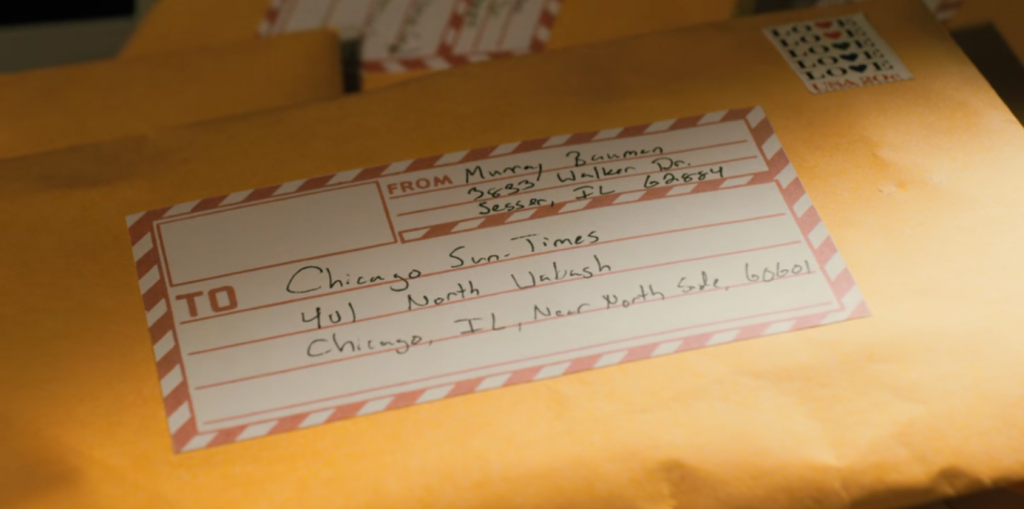 LOVE
LOVE
LOVE
USA 20c
FROM Murray Bauman
3833 Walker Dr.
Sesser, IL 62884
TO Chicago Sun-Times
401 North Wabash
Chicago, IL, Near North Side, 60601